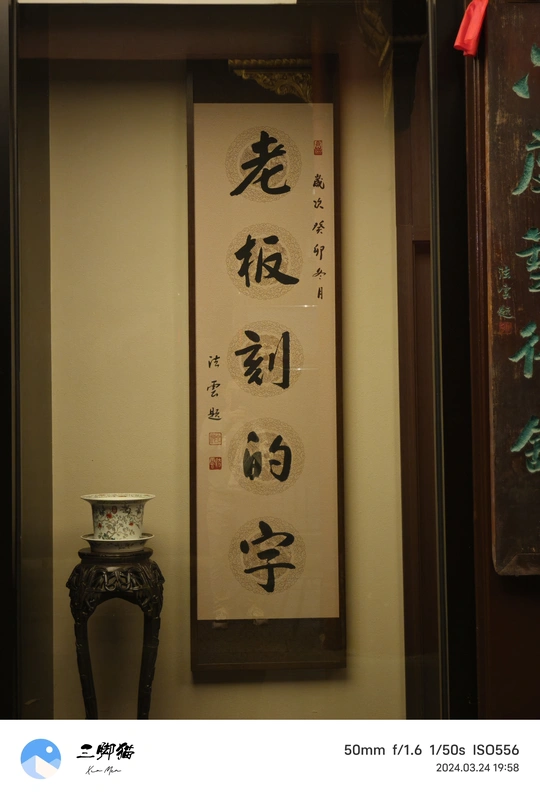 歲次癸卯冬月
老板刻的字
法雲题
藝術館
三脚猫
50mm f/1.6 1/50s ISO556
2024.03.24 19:58